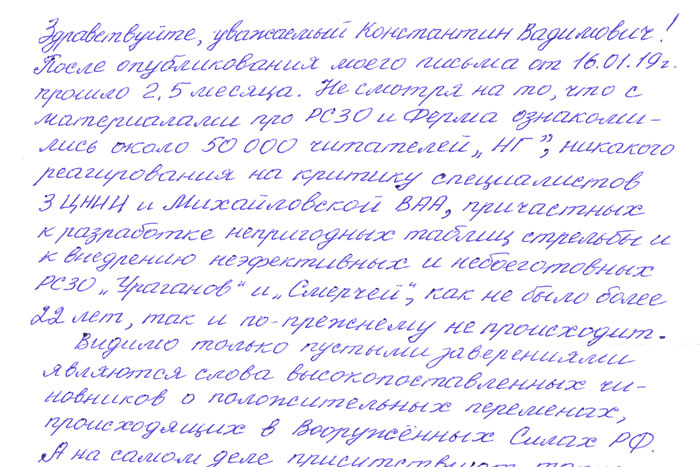 Здравствуйте, уважаемый Константин Вадимович!
После опубликования моего письма от 16.01.19г.
прошло 2,5 месяца. Не смотря на то, что с
материалами про РСЗО и Ферма ознакоми-
лись около 50 000 читателей „НГ”, никакого
реагирования на критику специалистов
3 ЦНИИ и Михайловской ВАА, причастных
к разработке непригодных таблиц стрельбы и
к внедрению неэфективных и небоеготовных
РСЗО „Ураганов“ и „Смерчей“, как не было более
22 лет, так и по-прежнему не происходит.
Видимо только пустыми заверениями
являются слова высокопоставленных чи-
новников о положительных переменах,
происходящих в Вооружённых Силах РФ.
А на самом деле присутствует